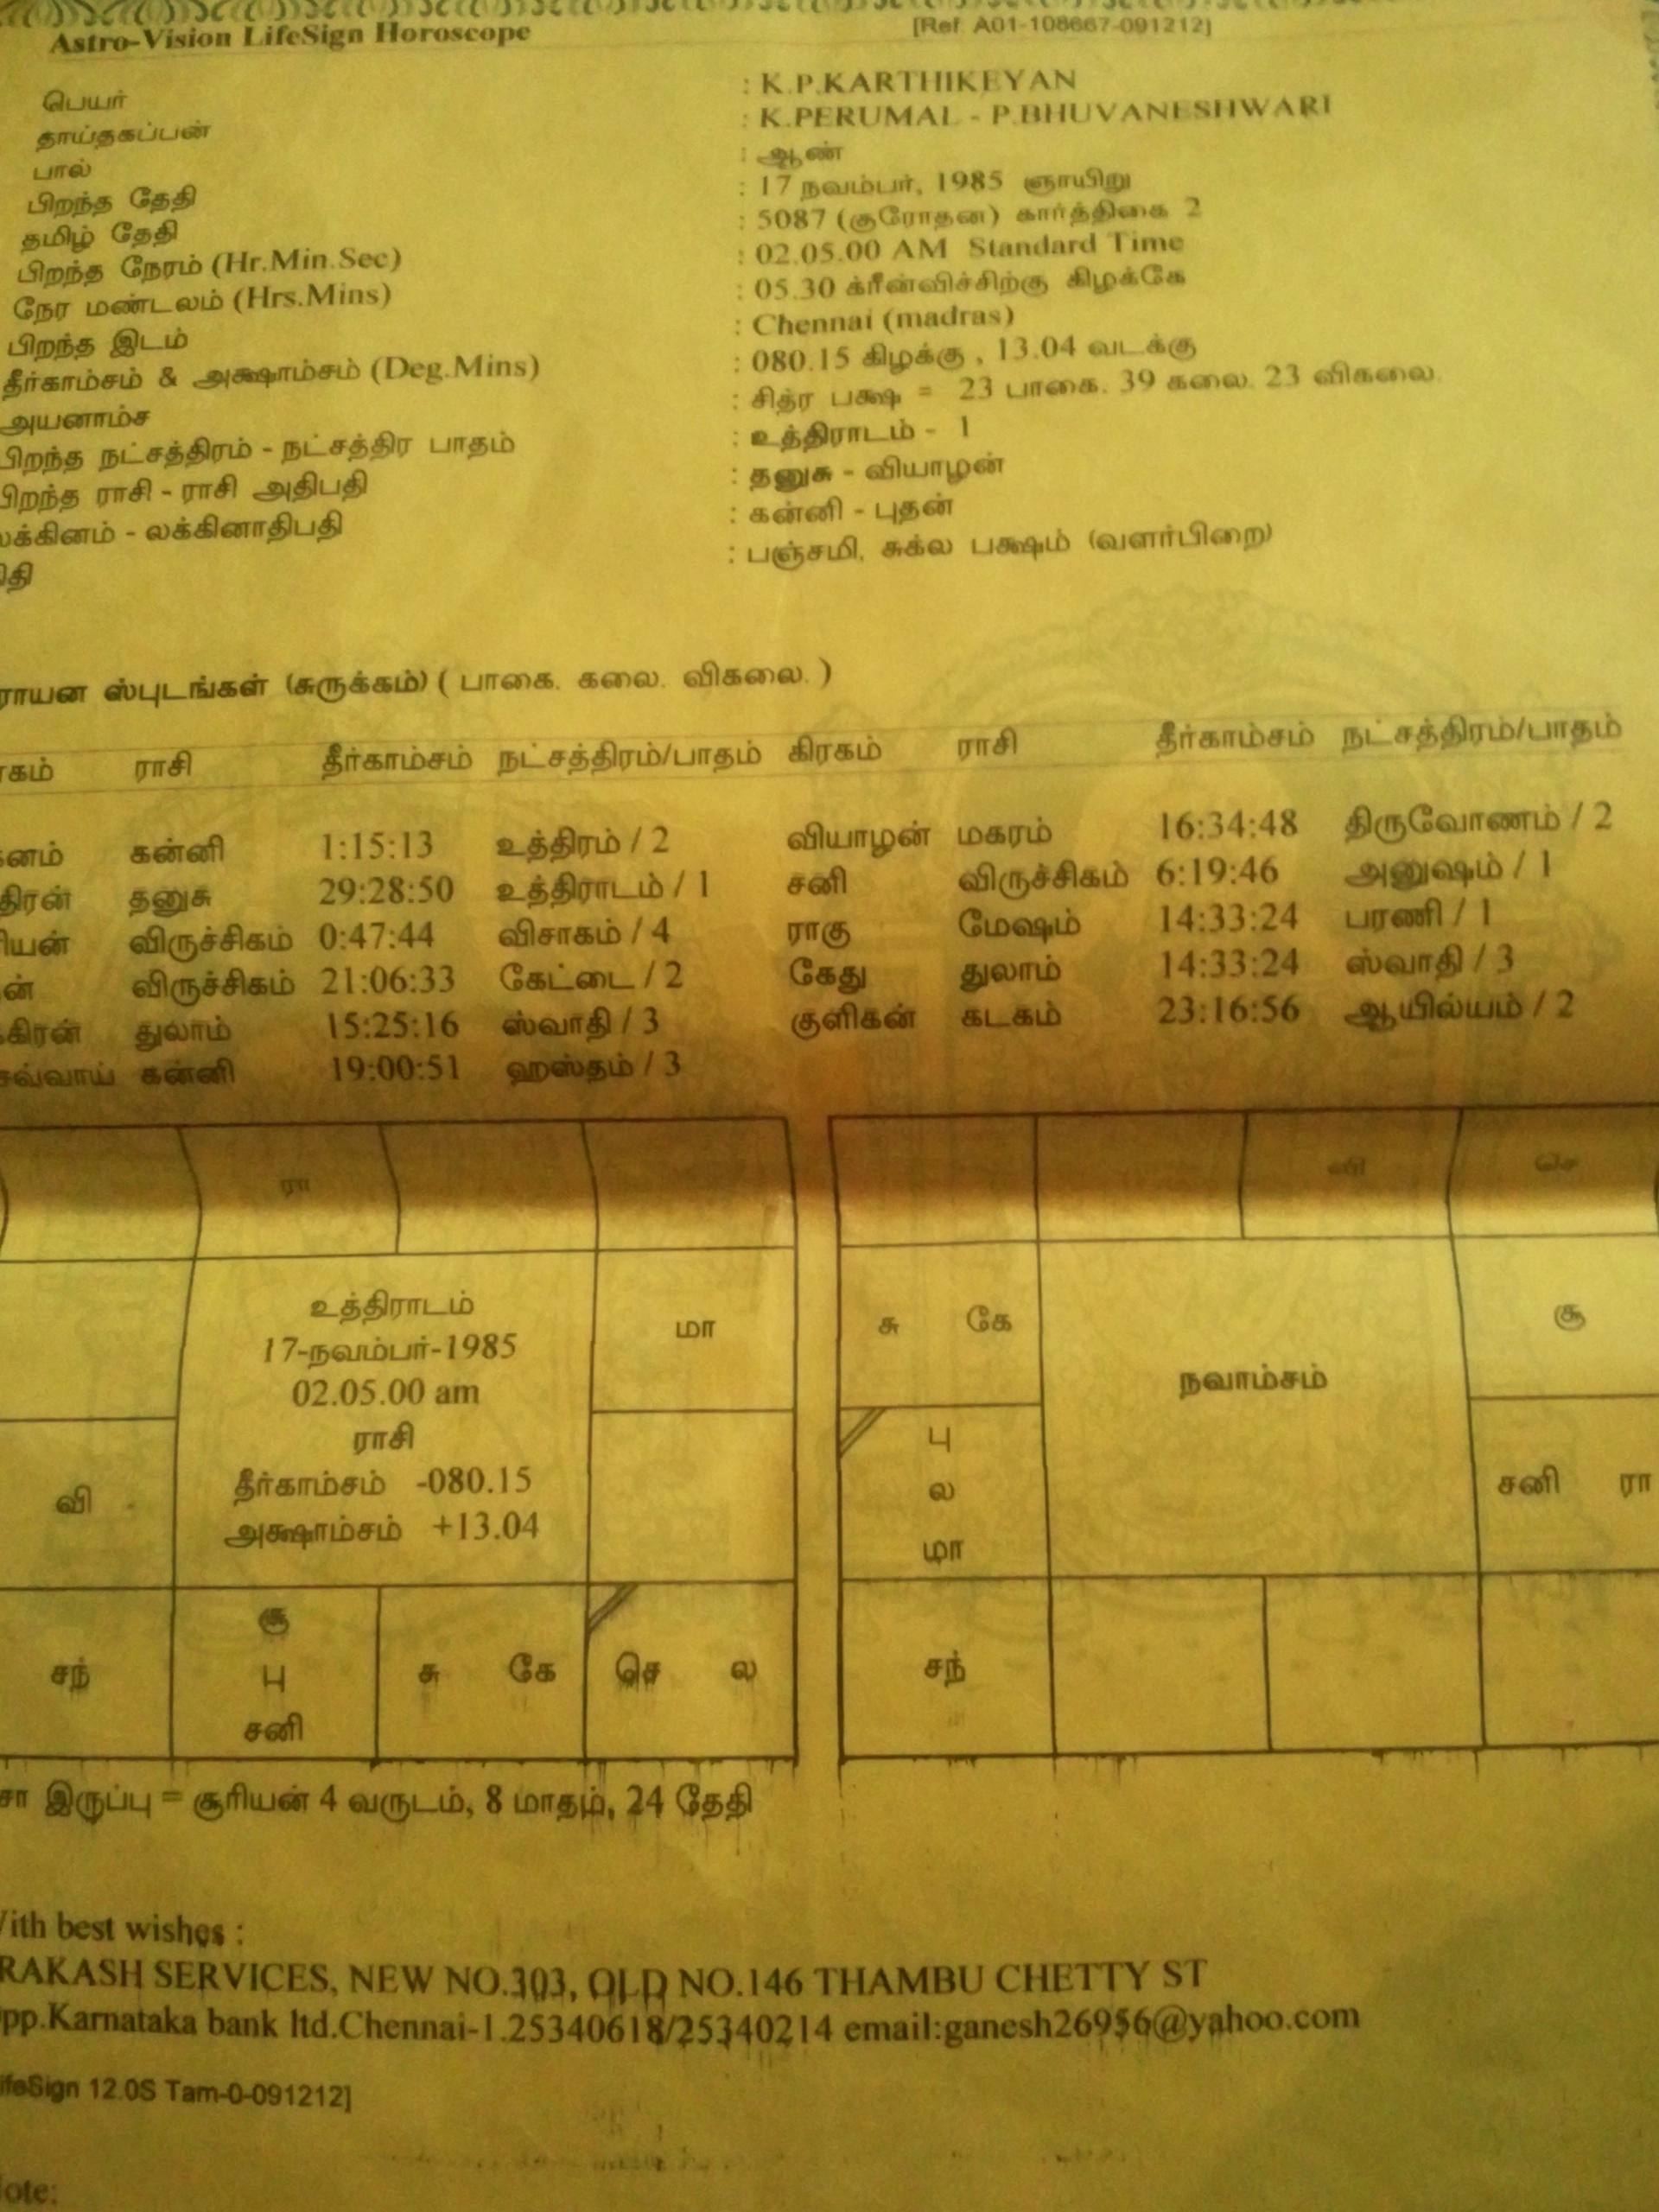 Astro-Vision LifeSign Horoscope [Ref. A01-108667-091212]
பெயர் : K.P.KARTHIKEYAN
தாய்தகப்பன் : K.PERUMAL - P.BHUVANESHWARI
பால் : ஆண்
பிறந்த தேதி : 17 நவம்பர், 1985 ஞாயிறு
தமிழ் தேதி : 5087 (குரோதன) கார்த்திகை 2
பிறந்த நேரம் (Hr.Min.Sec) : 02.05.00 AM Standard Time
நேர மண்டலம் (Hrs.Mins) : 05.30 க்ரீன்விச்சிற்கு கிழக்கே
பிறந்த இடம் : Chennai (madras)
தீர்காம்சம் & அக்ஷாம்சம் (Deg.Mins) : 080.15 கிழக்கு , 13.04 வடக்கு
அயனாம்ச : சித்ர பக்ஷ = 23 பாகை. 39 கலை. 23 விகலை.
பிறந்த நட்சத்திரம் - நட்சத்திர பாதம் : உத்திராடம் - 1
பிறந்த ராசி - ராசி அதிபதி : தனுசு - வியாழன்
லக்கினம் - லக்கினாதிபதி : கன்னி - புதன்
திதி : பஞ்சமி, சுக்ல பக்ஷம் (வளர்பிறை)
ராயன ஸ்புடங்கள் (சுருக்கம்) ( பாகை. கலை. விகலை. )
ரகம் ராசி தீர்காம்சம் நட்சத்திரம்/பாதம் கிரகம் ராசி தீர்காம்சம் நட்சத்திரம்/பாதம்
னம் கன்னி 1:15:13 உத்திரம் / 2 வியாழன் மகரம் 16:34:48 திருவோணம் / 2
திரன் தனுசு 29:28:50 உத்திராடம் / 1 சனி விருச்சிகம் 6:19:46 அனுஷம் / 1
ரியன் விருச்சிகம் 0:47:44 விசாகம் / 4 ராகு மேஷம் 14:33:24 பரணி / 1
ன் விருச்சிகம் 21:06:33 கேட்டை / 2 கேது துலாம் 14:33:24 ஸ்வாதி / 3
கிரன் துலாம் 15:25:16 ஸ்வாதி / 3 குளிகன் கடகம் 23:16:56 ஆயில்யம் / 2
செவ்வாய் கன்னி 19:00:51 ஹஸ்தம் / 3
ரா வி செ
உத்திராடம்
17-நவம்பர்-1985
02.05.00 am
ராசி
தீர்காம்சம் -080.15
அக்ஷாம்சம் +13.04
மா
வி
சந்
சூ
பு
சனி
சு கே
செ ல
சு கே
நவாம்சம்
சூ
பு
ல
மா
சனி ரா
சந்
சா இருப்பு = சூரியன் 4 வருடம், 8 மாதம், 24 தேதி
With best wishes :
RAKASH SERVICES, NEW NO.303, OLD NO.146 THAMBU CHETTY ST
pp.Karnataka bank ltd.Chennai-1.25340618/25340214 email:ganesh26956@yahoo.com
ifeSign 12.0S Tam-0-091212]
ote: